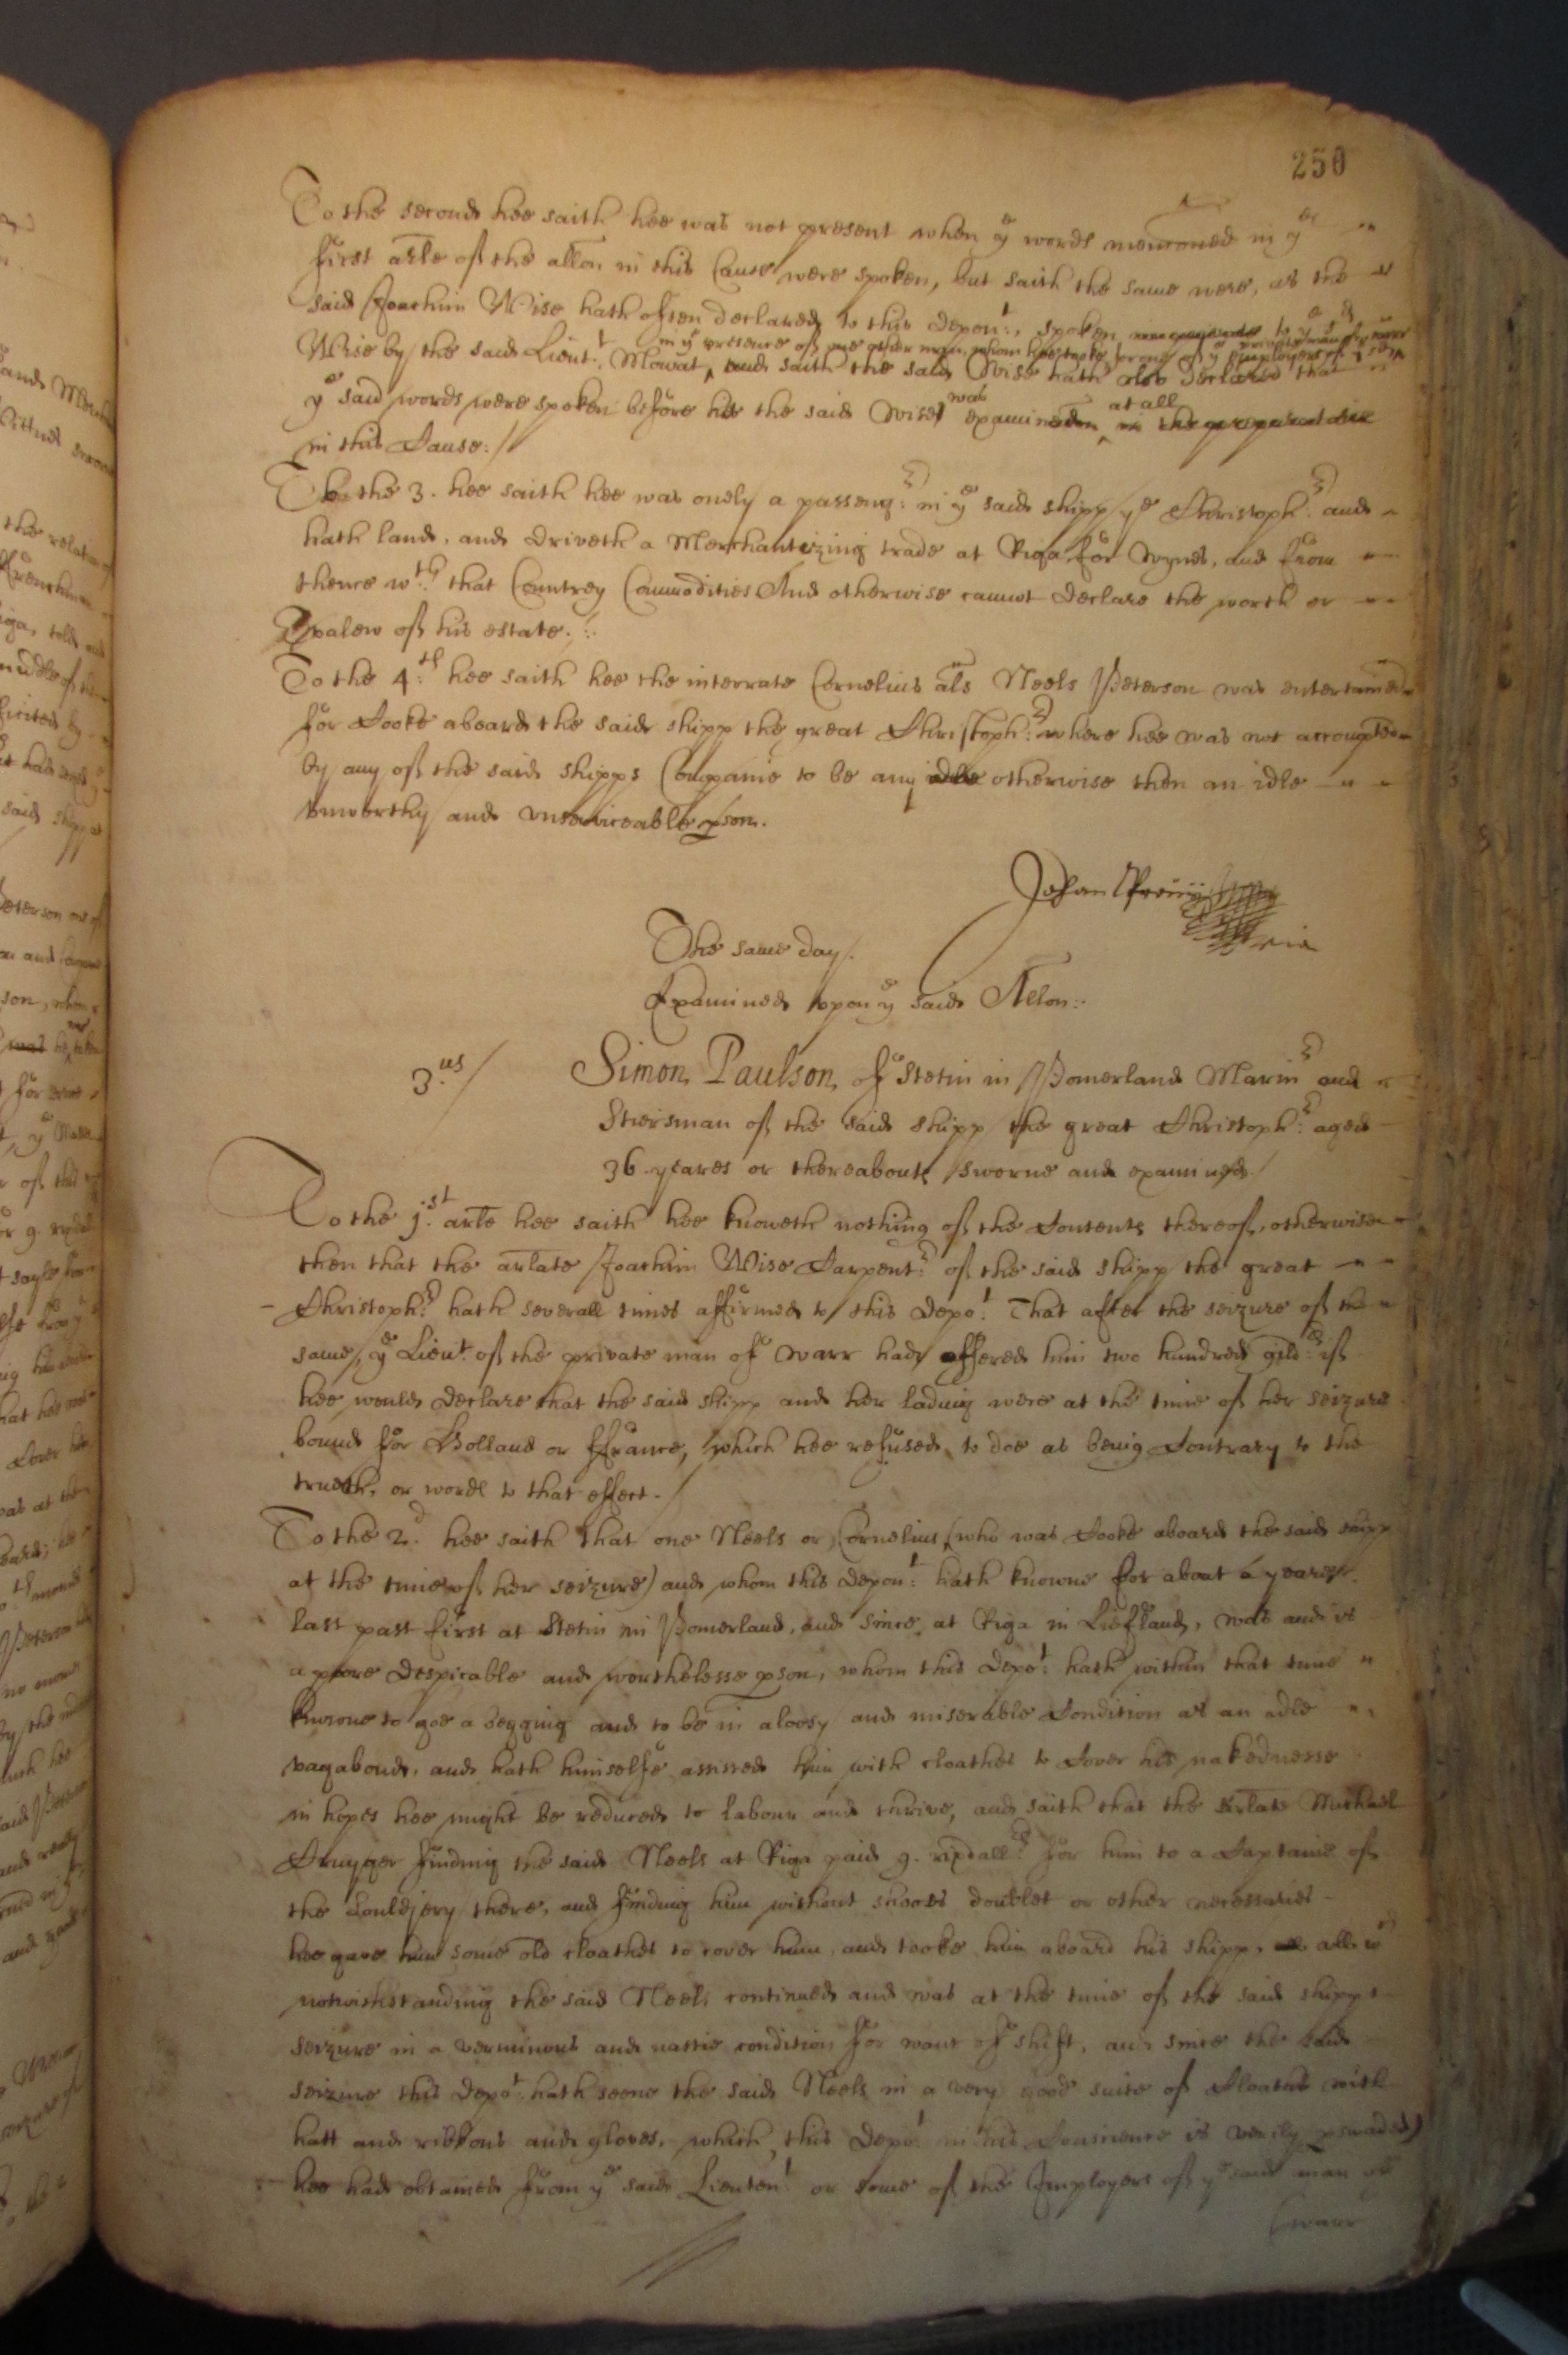 250
To the second hee saith hee was not present when ye words menconed in ye
first arle of the allon in this Cause were spoken, but saith the same were, as the
said Joachim Wise hath often declared to this depont:, spoken to ye sd
in ye presence of one other man, whom hee tooke
Wise by the said Lieut: Mowat, and saith the said Wise hath also declared that
ye said words were spoken before hee the said Wise was examined at all
in this Cause./
To the 3. hee saith hee was onely a passengr: in ye said shipp ye Christophr: and
hath land, and driveth a Merchantizing trade at Riga for wynes, and from
thence wth that Countrey Commodities And otherwise cannot declare the worth or
valew of his estate./:
To the 4th: hee saith hee the interrate Cornelius als Neels Peterson was entertained
for Cooke aboard the said shipp the great Christophr: where hee was not accompted
by any of the said shipps Companie to be any otherwise then an idle
unworthy and unserviceable pson.
Johan
The same day.
Examined upon ye said Allon:
3.us/ Simon Paulson of Stetin in Pomerland Marinr and
Stiersman of the said shipp the great Christophr: aged
36 yeares or thereabouts sworne and examined./
To the j:st arle hee saith hee knoweth nothing of the Contents thereof, otherwise
then that the arlate Joachim Wise Carpentr: of the said shipp the great
Christophr: hath severall times affirmed to this depot That after the seizure of the
same, ye Lieut of the private man of warr had offered him two hundred gilds: if
hee would declare that the said shipp and her lading were at the time of her seizure
bound for Holland or ffrance, which hee refused to doe as being Contrary to the
trueth, or words to that effect./
To the 2d: hee saith that one Neels or Cornelius (who was Cooke aboard the said shipp
at the time of her seizure) and whom this depont: hath knowne for about a yeare
last past first at Stetin in Pomerland, and since at Riga in Liefland, was and is
a poore despicable and worthelesse pson, whom this depot: hath within that time
knowne to goe a begging and to be in a loosy and miserable Condition as an idle
vagabond, and hath himselfe assisted him with cloathes to Cover his nakednesse
in hopes hee might be reduced to labour and thrive, and saith that the arlate Michael
Cruyger finding the said Neels at Riga paid 9. rixdallrs for him to a Captaine of
the Souldjery there, and finding him without shooes doublet or other necessaries
hee gave him some old cloathes to cover him, and tooke him aboard his shipp, all wch
notwithstanding the said Neels continued and was at the time of the said shipps
seizure in a verminous and nastie condition for want of shift, and since the said
seizure this depot: hath seene the said Neels in a very good suite of Cloathes with
hatt and ribbons and gloves, which this depot in his Conscience is verily pswaded
hee had obtained from ye said Lieutent: or some of the Imployers of ye said man of
(warr